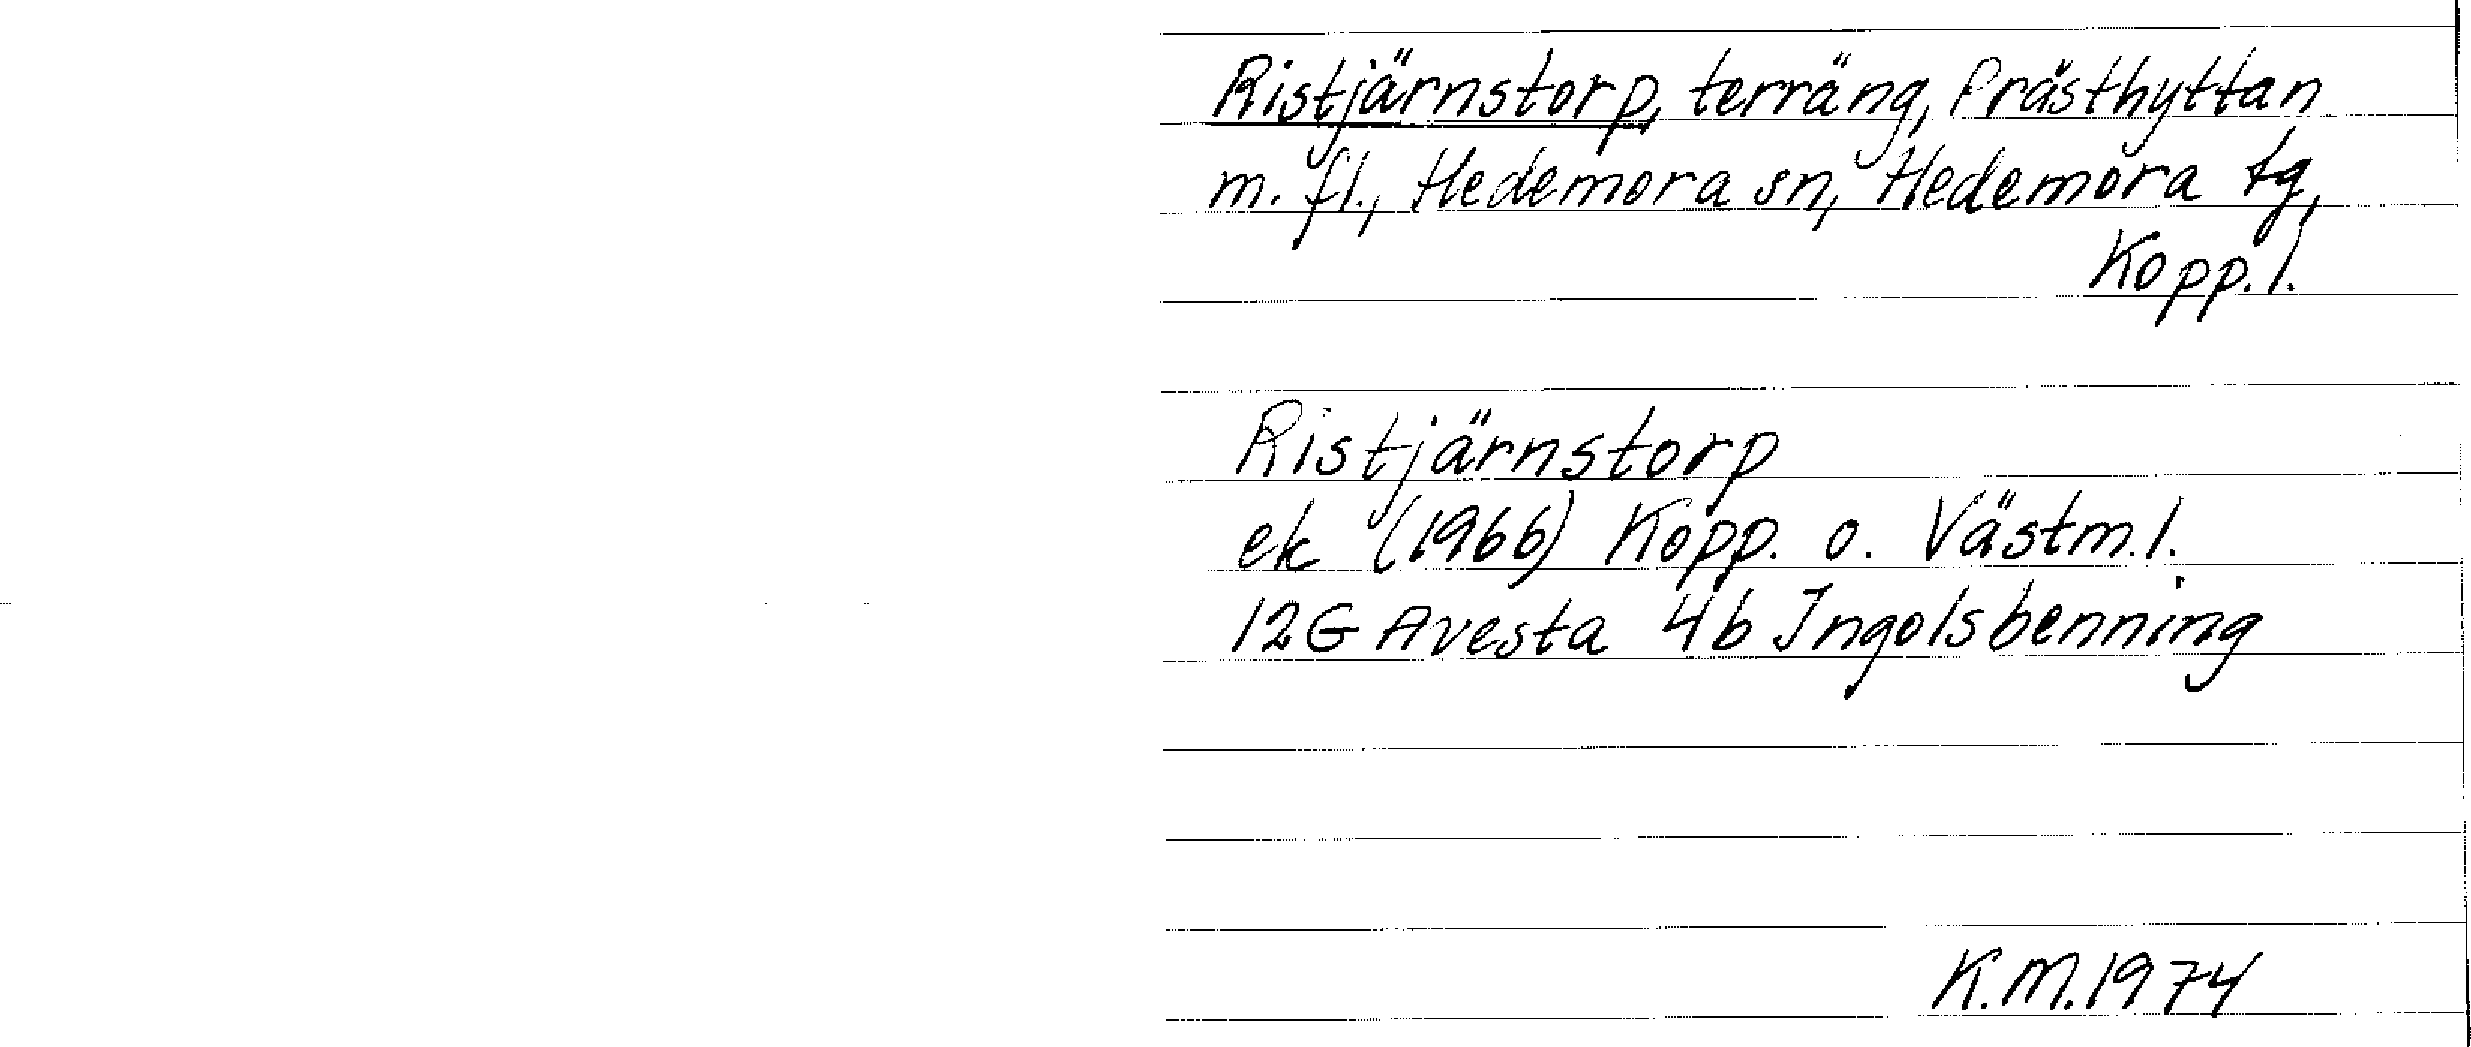 Ristjärnstorp, terräng, Prästhyttan
m. fl., Hedemora sn, Hedemora tg,
Kopp. l.
Ristjärnstorp
ek (1966) Kopp. o. Västm. l.
12G Avesta 4b Ingolsbenning
K.M. 1974